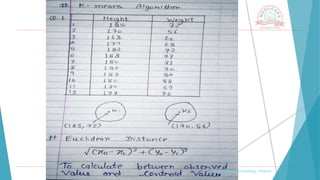 # K-means Algorithm
Q.1 Height Weight
1 185 72
2 170 56
3 168 60
4 179 68
5 182 72
6 188 77
7 180 71
8 180 70
9 183 84
10 180 88
11 180 67
12 177 76
K1 K2
(185, 72) (170, 56)
# Euclidean Distance
√(x₀ - x_c)² + (y₀ - y_c)²
To calculate between observed
Value and Centroid Value